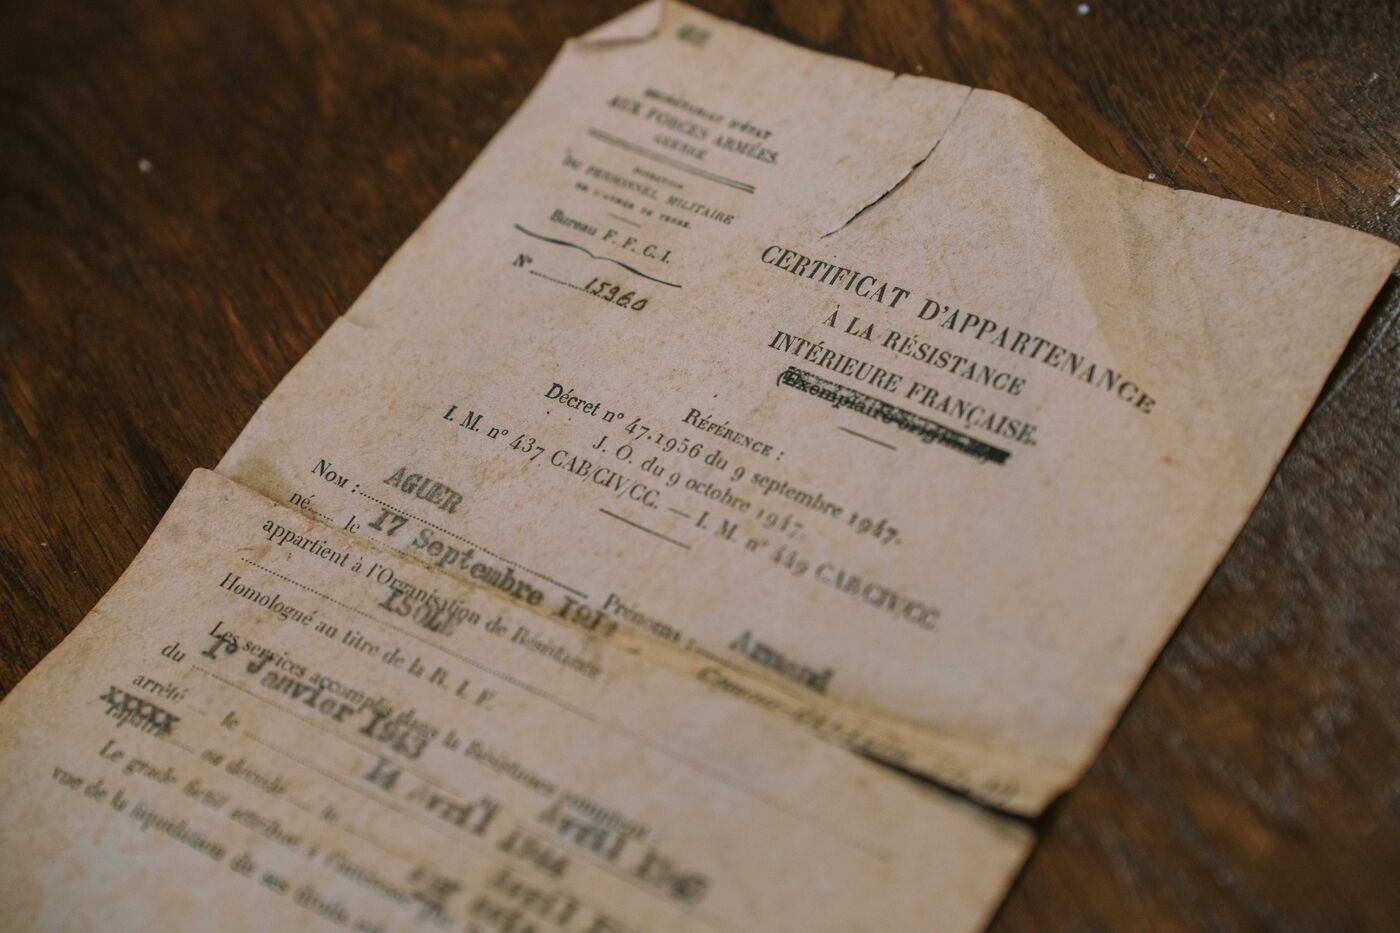 SECRÉTARIAT D'ÉTAT
AUX FORCES ARMÉES
GUERRE
DIRECTION
DU PERSONNEL MILITAIRE
DE L'ARMÉE DE TERRE.
Bureau F. F. C. I.
N° 15960
CERTIFICAT D'APPARTENANCE
À LA RÉSISTANCE
INTÉRIEURE FRANÇAISE.
(Exemplaire original)
RÉFÉRENCE :
Décret n° 47.1956 du 9 septembre 1947.
J. O. du 9 octobre 1947.
I. M. n° 437 CAB/CIV/CC. — I. M. n° 449 CAB/CIV/CC.
NOM : AGUER Prénoms : Armand
né le 17 Septembre
appartient à l'Organisation de Résistance :
ISOLE
Homologué au titre de la R. I. F.
Les services accomplis dans la Résistance
du 1° Janvier 1943
arrêté le 14 Avril 1944
xxxxx
ou décédé le
Le grade fictif attribué à
vue de la liquidation de ses droits